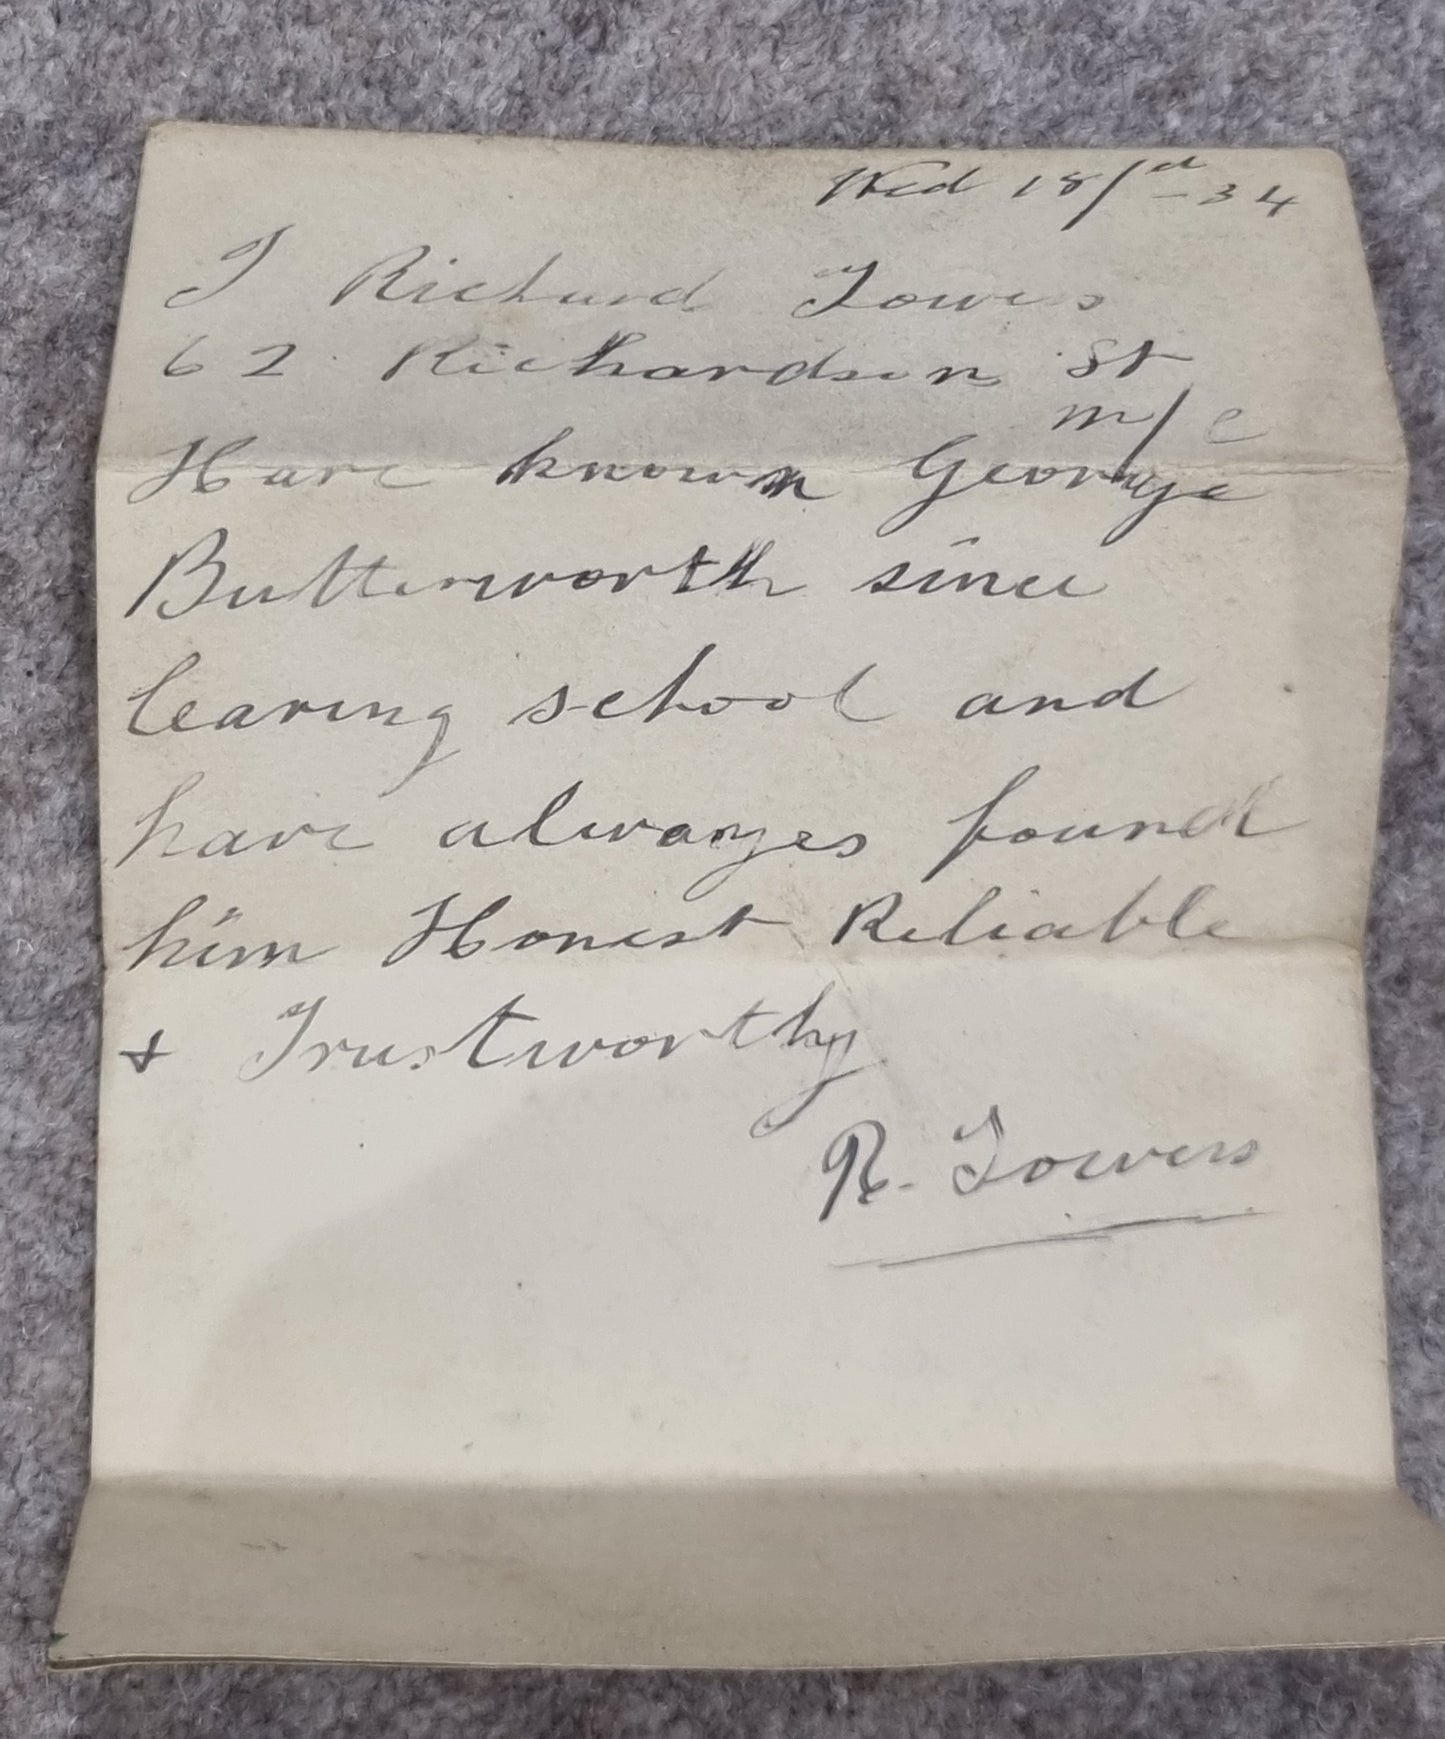 Wed 18/ - 34
I Richard Towers
62 Richardson St
m/c
Have known George
Butterworth since
leaving school and
have alwayes found
him Honest Reliable
+ Trustworthy
R. Towers